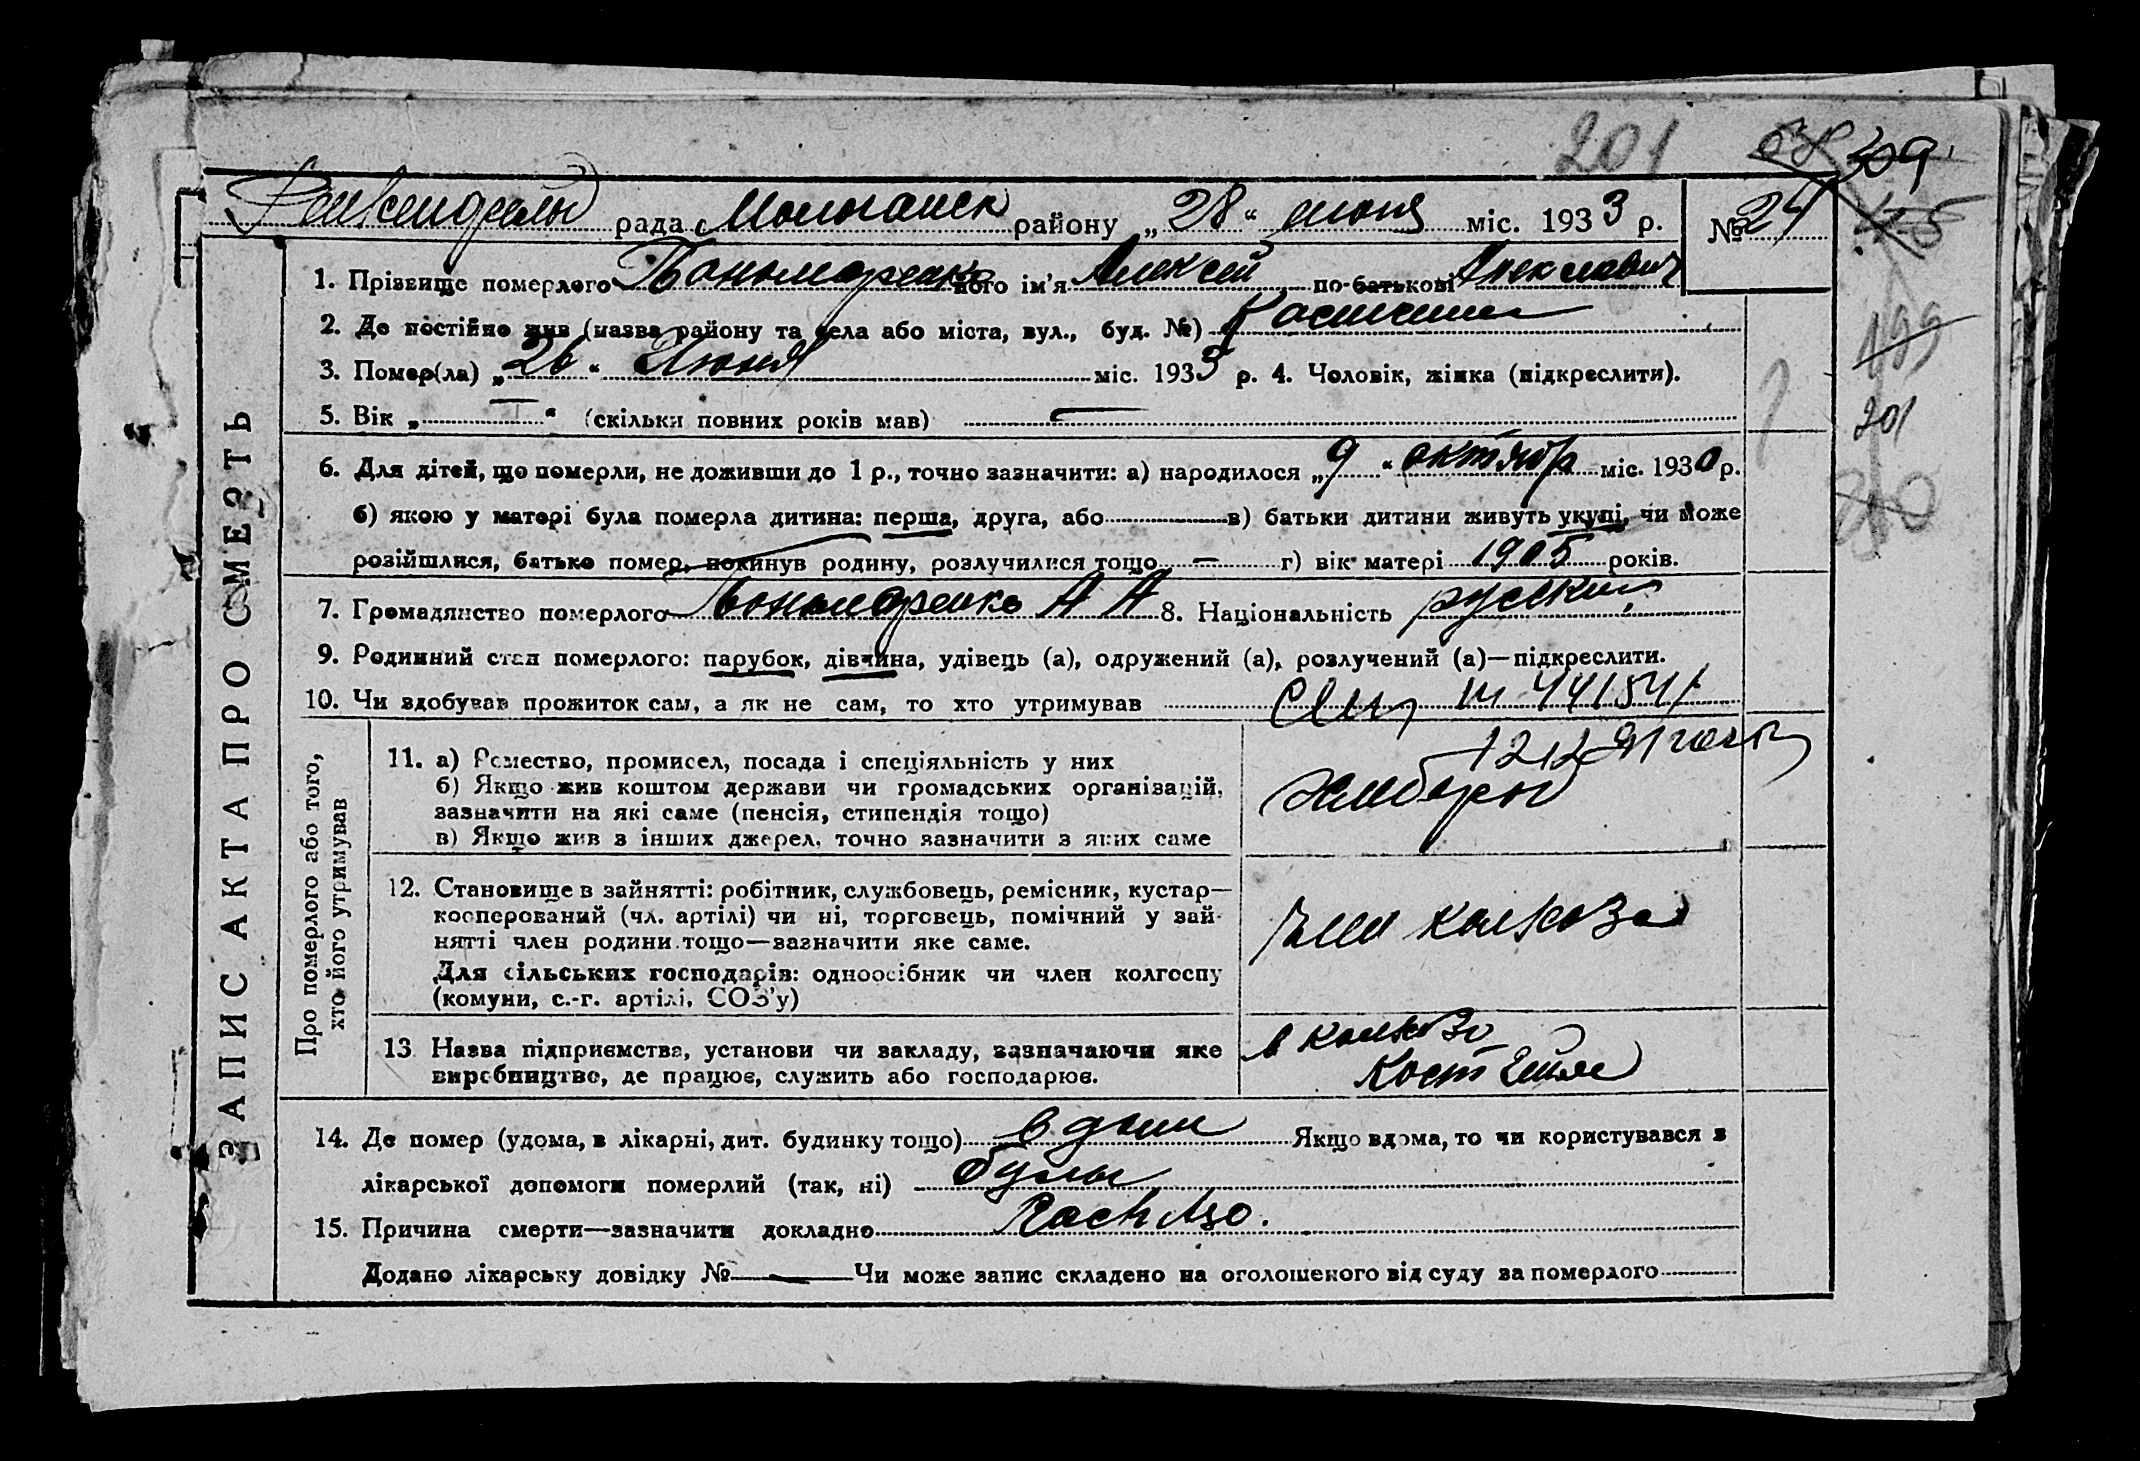 201 209
рада Мологанск району „28“ июня міс. 1933 р. № 24
1. Прізвище померлого Пономаренко його ім'я Алексей по-батькові
199
2. Де постійно жив (назва району та села або міста, вул., буд. №)
3. Помер(ла) „26“ Июня міс. 1933 р. 4. Чоловік, жінка (підкреслити).
5. Вік „ — “ (скільки повних років мав) —
201
6. Для дітей, що померли, не доживши до 1 р., точно зазначити: а) народилося „9“ октябр міс. 1930 р.
б) якою у матері була померла дитина: перша, друга, або в) батьки дитини живуть укупі, чи може
розійшлися, батько помер, покинув родину, розлучилися тощо — г) вік матері 1905 років.
7. Громадянство померлого Пономаренко А А 8. Національність русский
9. Родинний стан померлого: парубок, дівчина, удівець (а), одружений (а), розлучений (а)—підкреслити.
10. Чи здобував прожиток сам, а як не сам, то хто утримував
ЗАПИС АКТА ПРО СМЕРТЬ
Про померлого або того,
хто його утримував
11. а) Ремество, промисел, посада і спеціяльність у них
б) Якщо жив коштом держави чи громадських організацій,
зазначити на які саме (пенсія, стипендія тощо)
в) Якщо жив з інших джерел, точно зазначити з яких саме
хлебороб
12. Становище в зайнятті: робітник, службовець, ремісник, кустар—
кооперований (чл. артілі) чи ні, торговець, помічний у зай-
нятті член родини тощо—зазначити яке саме.
Для сільських господарів: одноосібник чи член колгоспу
(комуни, с.-г. артілі, СОЗ'у)
член колхоза
13 Назва підприємства, установи чи закладу, зазначаючи яке
виробництво, де працює, служить або господарює.
в колхозе
14. Де помер (удома, в лікарні, дит. будинку тощо) в доме Якщо вдома, то чи користувався з
лікарської допомоги померлий (так, ні)
15. Причина смерти—зазначити докладно
Додано лікарську довідку № — Чи може запис складено на оголошеного від суду за померлого